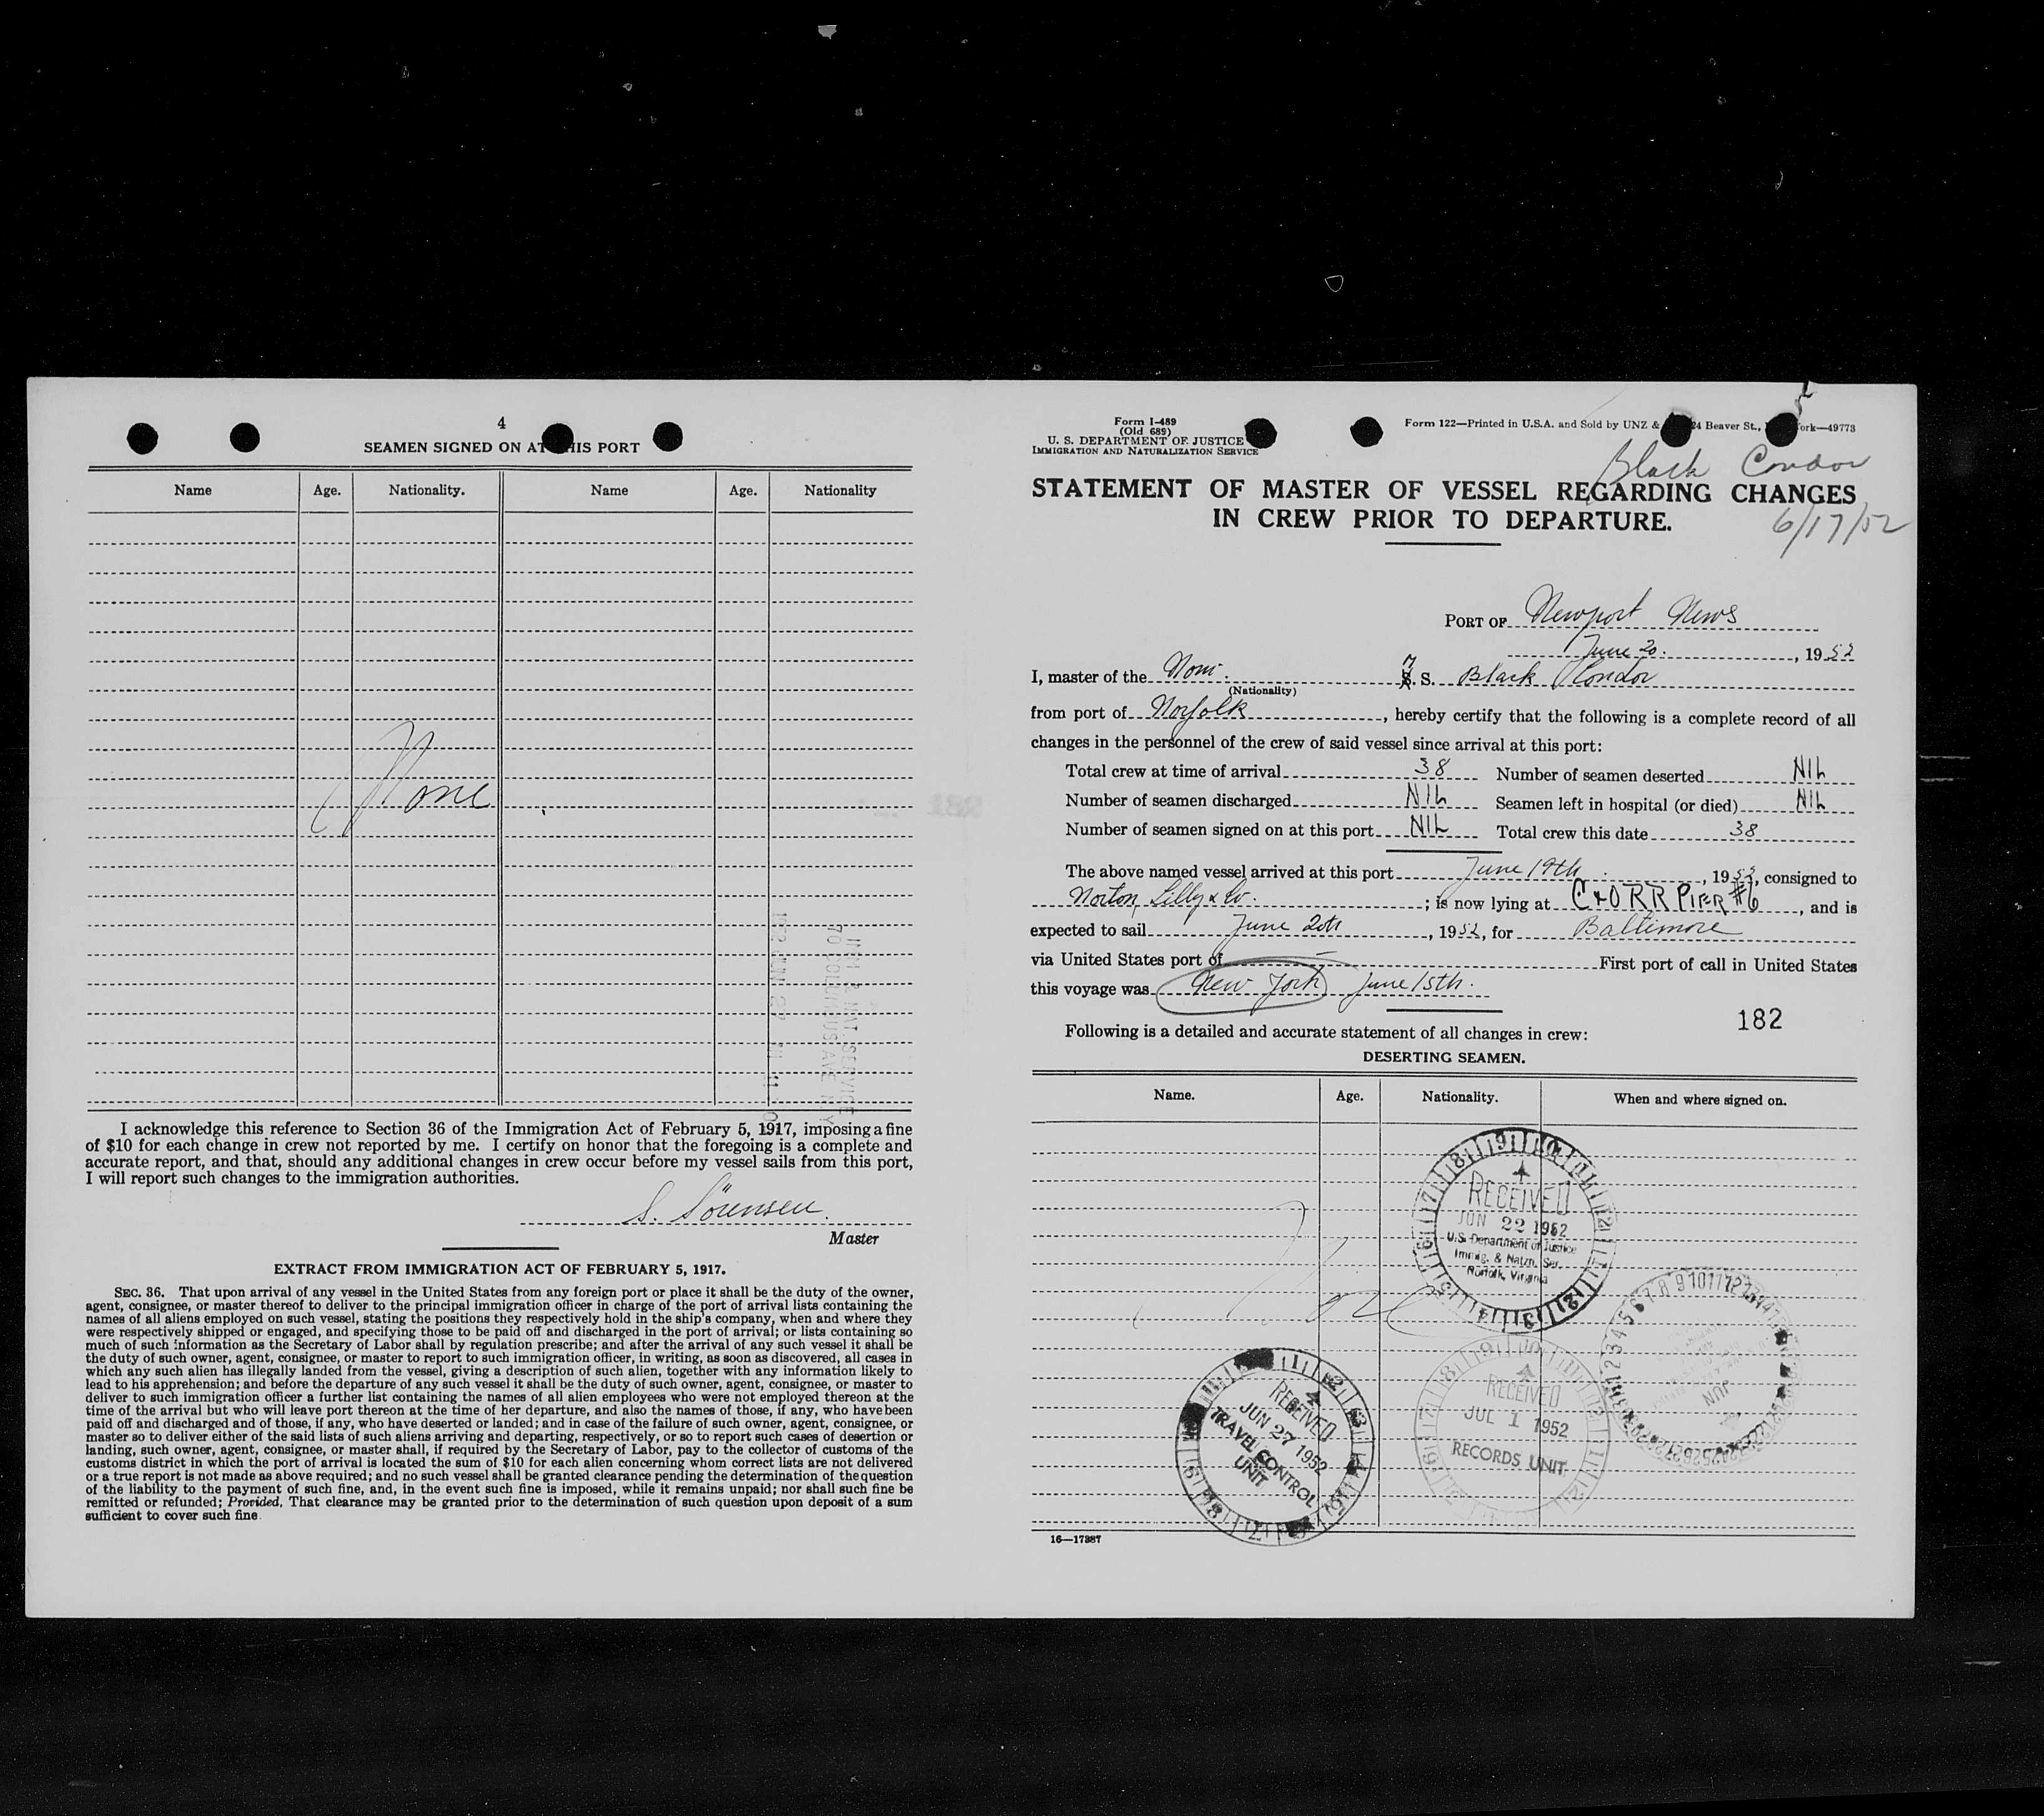 4
SEAMEN SIGNED ON AT THIS PORT
Name Age. Nationality. Name Age. Nationality
None
I acknowledge this reference to Section 36 of the Immigration Act of February 5, 1917, imposing a fine
of $10 for each change in crew not reported by me. I certify on honor that the foregoing is a complete and
accurate report, and that, should any additional changes in crew occur before my vessel sails from this port,
I will report such changes to the immigration authorities.
S. Sörensen.
Master
EXTRACT FROM IMMIGRATION ACT OF FEBRUARY 5, 1917.
SEC. 36. That upon arrival of any vessel in the United States from any foreign port or place it shall be the duty of the owner,
agent, consignee, or master thereof to deliver to the principal immigration officer in charge of the port of arrival lists containing the
names of all aliens employed on such vessel, stating the positions they respectively hold in the ship's company, when and where they
were respectively shipped or engaged, and specifying those to be paid off and discharged in the port of arrival; or lists containing so
much of such information as the Secretary of Labor shall by regulation prescribe; and after the arrival of any such vessel it shall be
the duty of such owner, agent, consignee, or master to report to such immigration officer, in writing, as soon as discovered, all cases in
which any such alien has illegally landed from the vessel, giving a description of such alien, together with any information likely to
lead to his apprehension; and before the departure of any such vessel it shall be the duty of such owner, agent, consignee, or master to
deliver to such immigration officer a further list containing the names of all alien employees who were not employed thereon at the
time of the arrival but who will leave port thereon at the time of her departure, and also the names of those, if any, who have been
paid off and discharged and of those, if any, who have deserted or landed; and in case of the failure of such owner, agent, consignee, or
master so to deliver either of the said lists of such aliens arriving and departing, respectively, or so to report such cases of desertion or
landing, such owner, agent, consignee, or master shall, if required by the Secretary of Labor, pay to the collector of customs of the
customs district in which the port of arrival is located the sum of $10 for each alien concerning whom correct lists are not delivered
or a true report is not made as above required; and no such vessel shall be granted clearance pending the determination of the question
of the liability to the payment of such fine, and, in the event such fine is imposed, while it remains unpaid; nor shall such fine be
remitted or refunded; Provided, That clearance may be granted prior to the determination of such question upon deposit of a sum
sufficient to cover such fine.
Form I-489
(Old 689)
U. S. DEPARTMENT OF JUSTICE
IMMIGRATION AND NATURALIZATION SERVICE
Form 122—Printed in U.S.A. and Sold by UNZ & 24 Beaver St., ork—49773
Black Condor
STATEMENT OF MASTER OF VESSEL REGARDING CHANGES
IN CREW PRIOR TO DEPARTURE.
6/17/52
PORT OF Newport News
June 20. , 1952
I, master of the Nom. M S. S. Black Condor
(Nationality)
from port of Norfolk , hereby certify that the following is a complete record of all
changes in the personnel of the crew of said vessel since arrival at this port:
Total crew at time of arrival 38 Number of seamen deserted NIL
Number of seamen discharged NIL Seamen left in hospital (or died) NIL
Number of seamen signed on at this port NIL Total crew this date 38
The above named vessel arrived at this port June 19th , 1952, consigned to
Norton, Lilly & Co. ; is now lying at C&O RR PIER #6 , and is
expected to sail June 20th , 1952, for Baltimore
via United States port of First port of call in United States
this voyage was New York June 15th.
Following is a detailed and accurate statement of all changes in crew:
182
DESERTING SEAMEN.
Name. Age. Nationality. When and where signed on.
RECEIVED
JUN 22 1952
U.S. Department of Justice
Immig. & Natzn. Ser.
Norfolk, Virginia
RECEIVED
JUN 27 1952
TRAVEL CONTROL
UNIT
RECEIVED
JUL 1 1952
RECORDS UNIT
JUN
16—17387